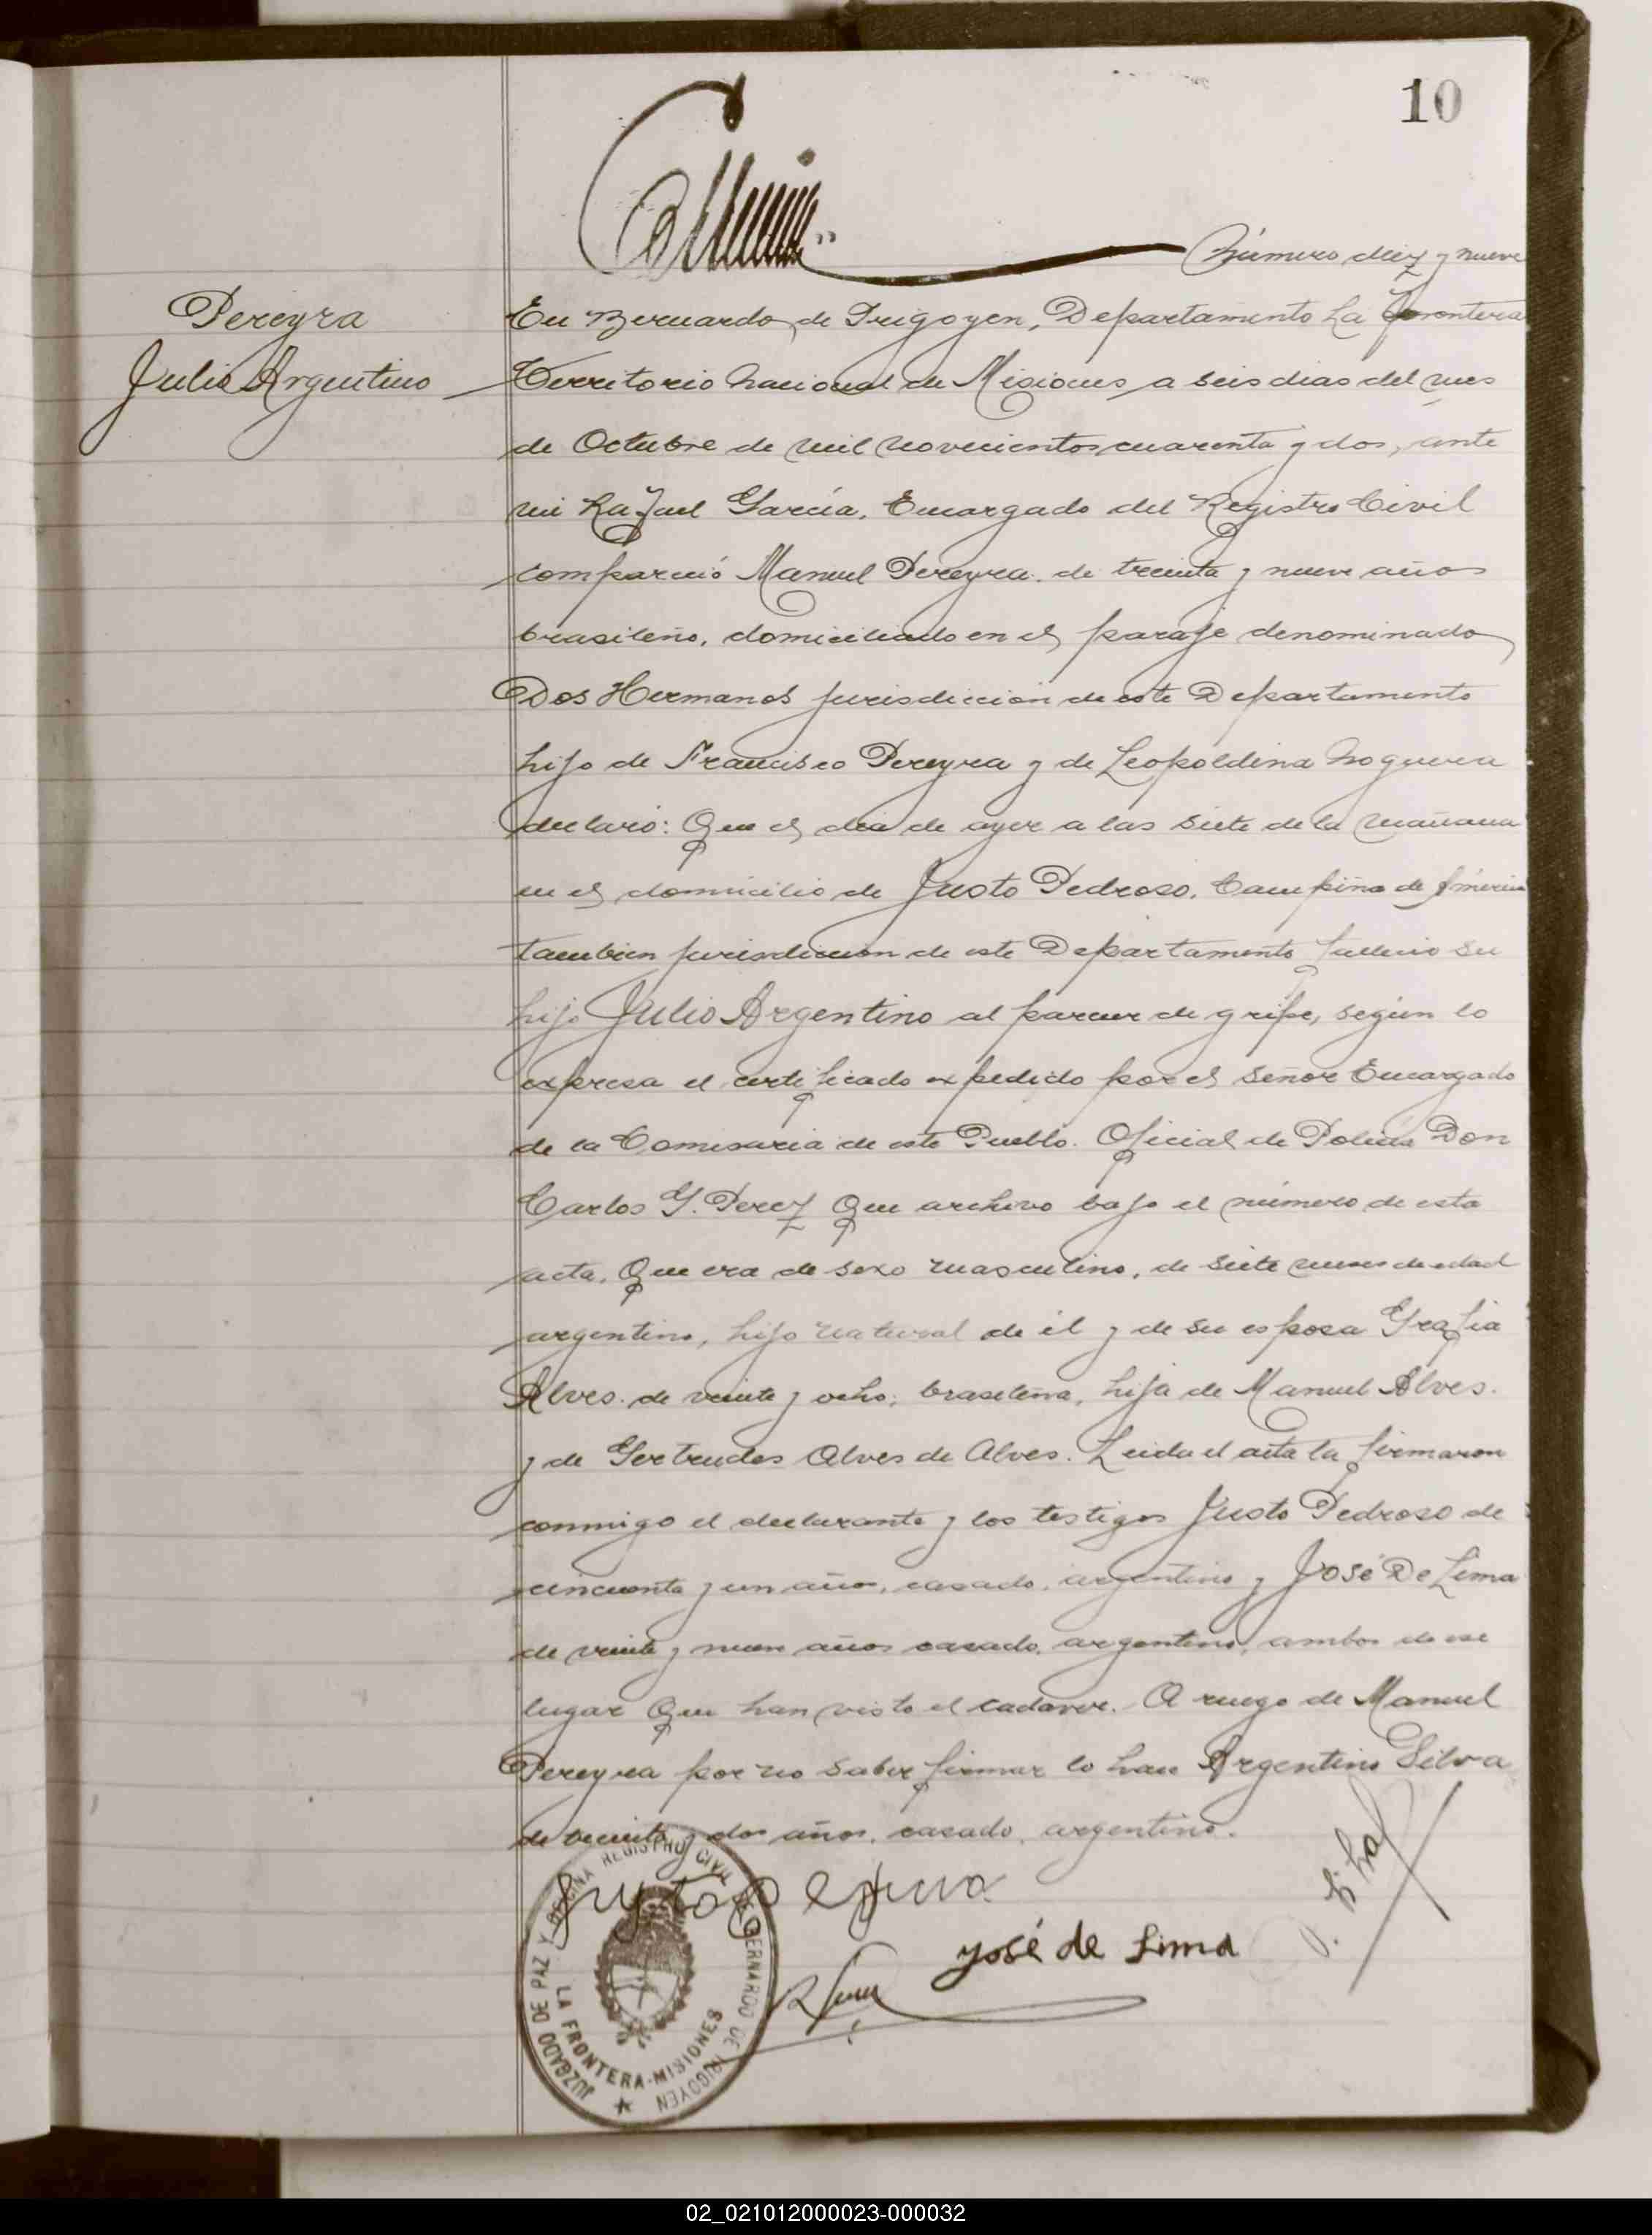 10
Número diez y nueve
Pereyra
Julio Argentino
En Bernardo de Irigoyen, Departamento La Frontera
Territorio Nacional de Misiones a seis dias del mes
de Octubre de mil novecientos cuarenta y dos, ante
mi Rafael García, Encargado del Registro Civil
compareció Manuel Pereyra de treinta y nueve años
brasileño, domiciliado en el paraje denominado
Dos Hermanos jurisdiccion de este Departamento
hijo de Francisco Pereyra y de Leopoldina Noguera
declaró: Que el dia de ayer a las siete de la mañana
en el domicilio de Justo Pedroso, Campiña de América
tambien jurisdiccion de este Departamento fallecio su
hijo Julio Argentino al parecer de gripe, según lo
expresa el certificado expedido por el señor Encargado
de la Comisaria de este Pueblo. Oficial de Policia Don
Carlos G. Perez Que archivo bajo el número de esta
acta, Que era de sexo masculino, de siete meses de edad
argentino, hijo natural de él y de su esposa Grafia
Alves. de veinte y ocho, brasileña, hija de Manuel Alves.
y de Gertrudes Alves de Alves. Leida el acta la firmaron
conmigo el declarante y los testigos Justo Pedroso de
cincuenta y un años, casado, argentino y José De Lima
de veinte y nueve años casado, argentino, ambos de ese
lugar Que han visto el cadaver. A ruego de Manuel
Pereyra por no saber firmar lo hace Argentino Silva
de treinta y dos años, casado, argentino.
José de Lima
JUZGADO DE PAZ Y OFICINA REGISTRO CIVIL DE BERNARDO DE IRIGOYEN
LA FRONTERA-MISIONES
02_021012000023-000032